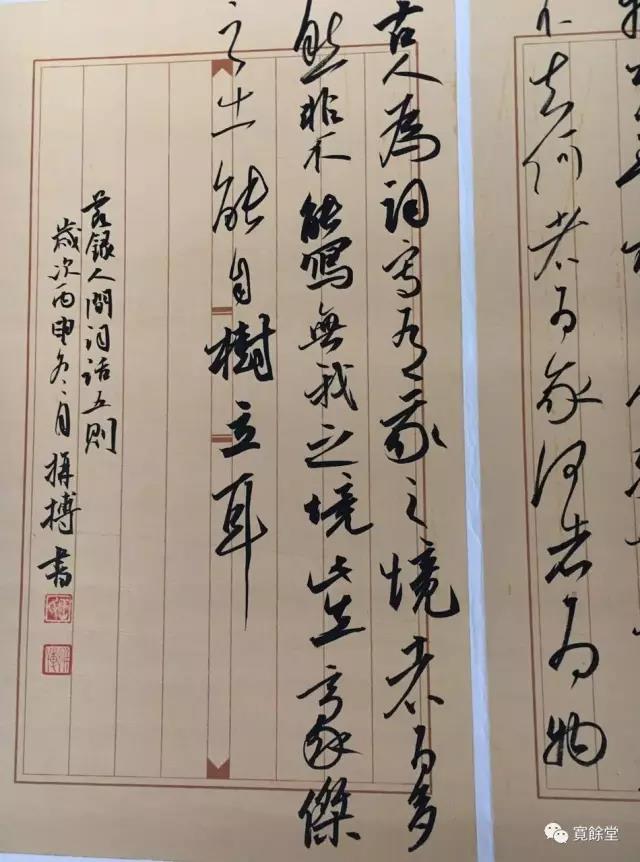 不知何者為我何者為物
古人為詞寫有我之境者為多
然非不能寫無我之境此在豪傑
之士能自樹立耳
節錄人間詞話五則
歲次丙申冬月 書
寬餘堂